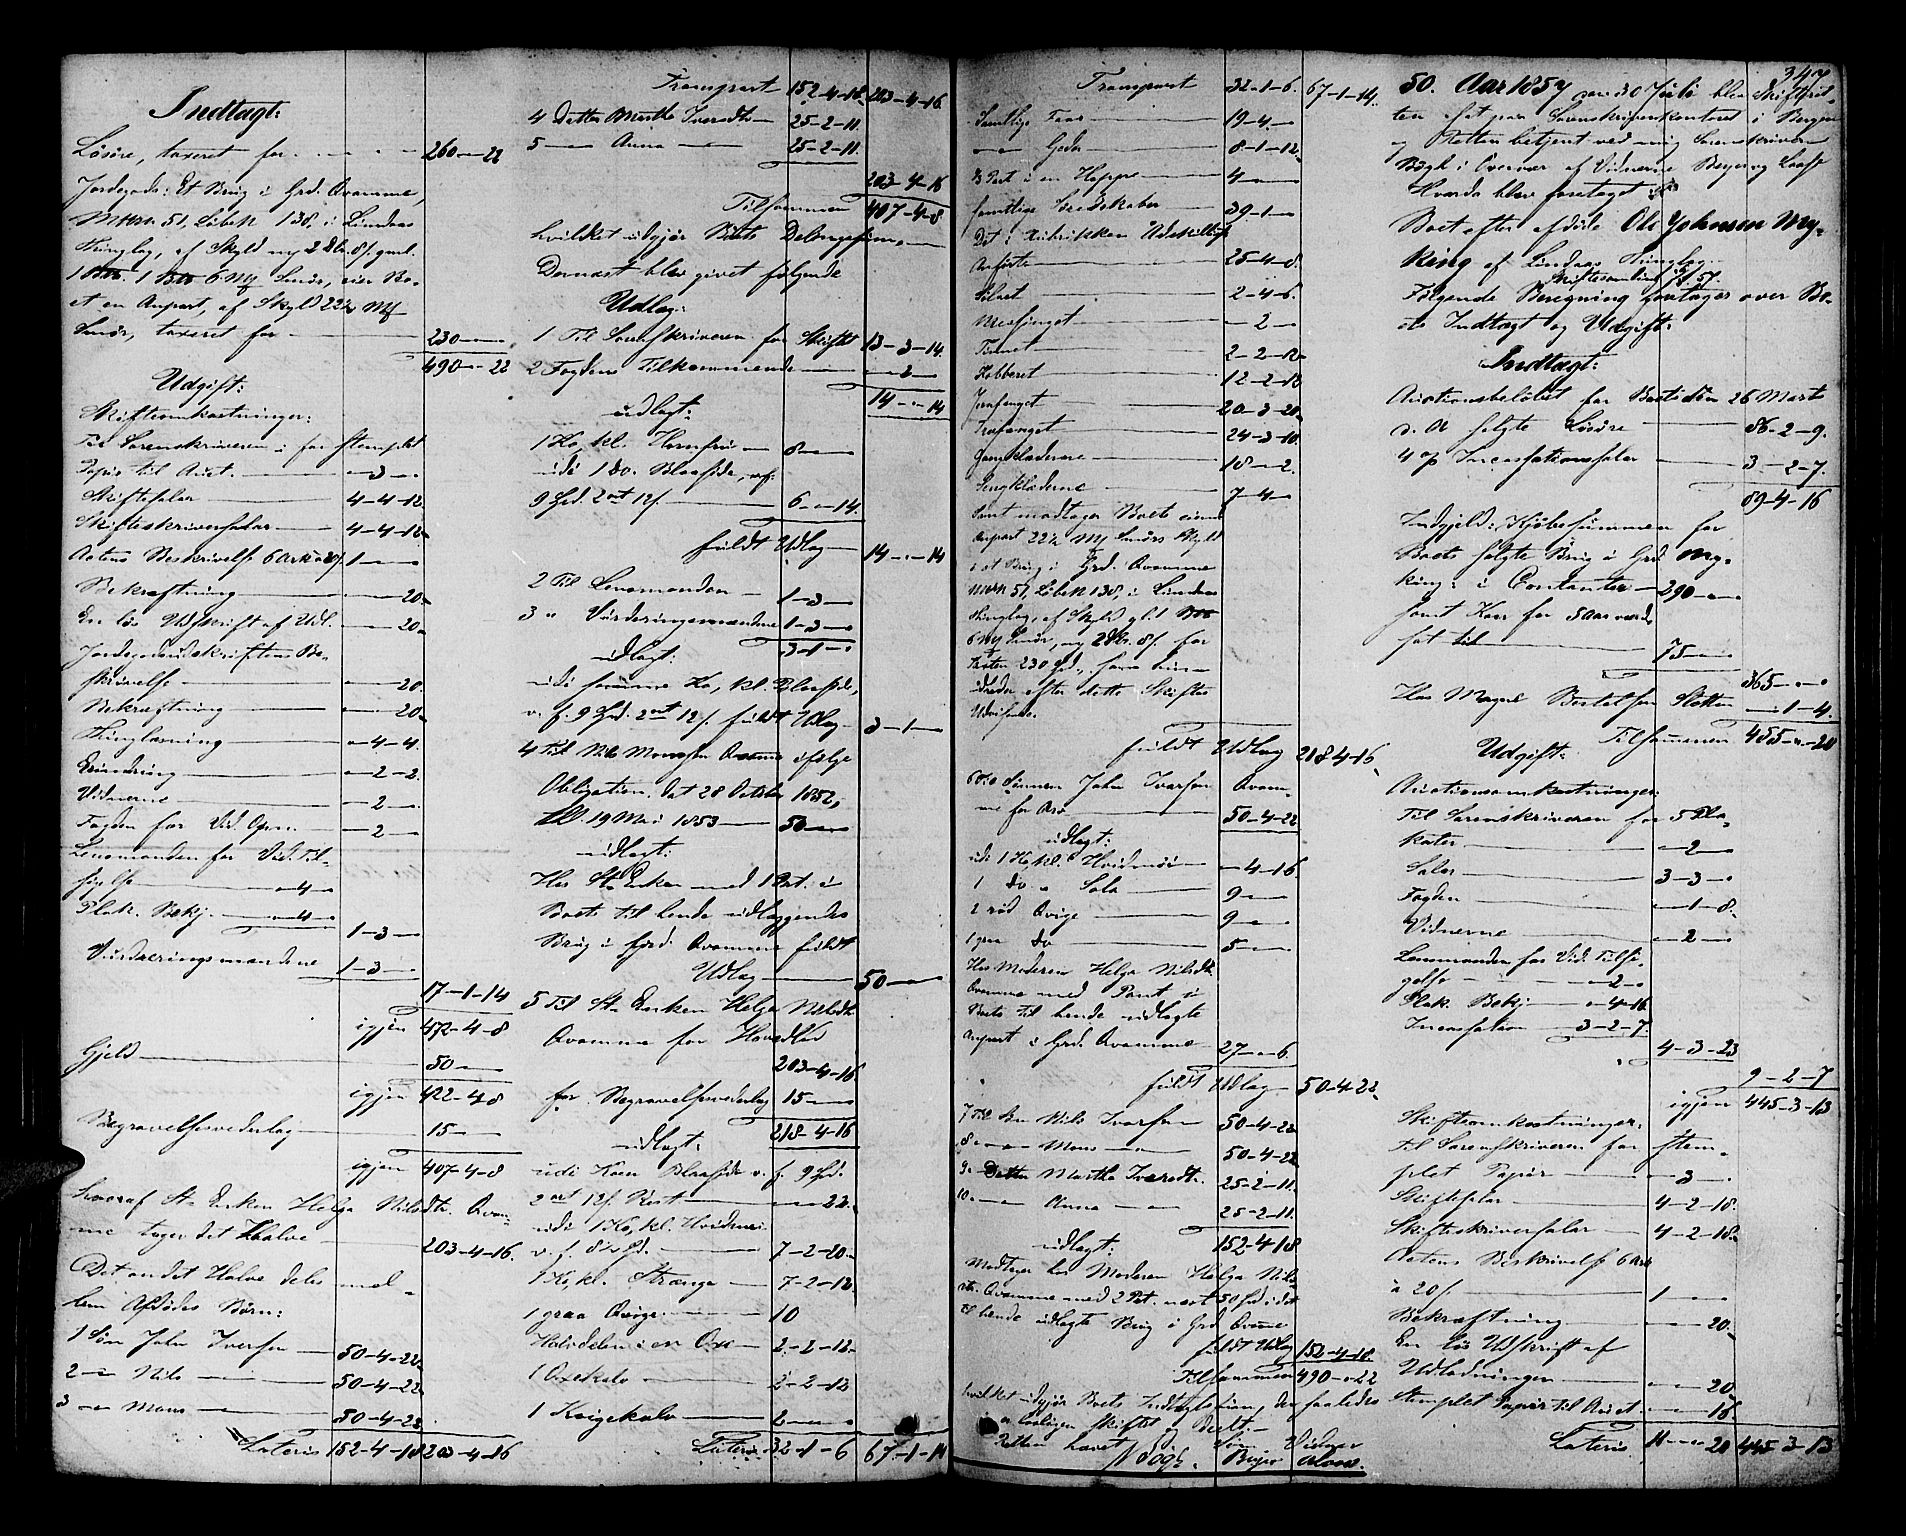 Indtægt:
Løsøre, taxeret for 260 " 22
Jordegods: Et Brug i Grd. Qvamme,
Mtrn 51, Løben 138, i Lindaas
Thinglag, af Skyld ny 2 Dlr. 8 s. gml.
1 Btt 6 Mk Smør, eier Bo-
et en Anpart, af Skyld 22½ Mk
Smør, taxeret for 230 " "
490 " 22
Udgift:
Skifteomkostninger:
Til Sorenskriveren: for stemplet
Papir til Auct. " 3 "
Skiftesalær 4-4-12
Skifteskriversalær 4-4-12
Actens Beskrivelse 6 Ark a 20 s. 1 " "
Bekræftning " " 20
En løs Udskrift af Udl. " " 20
Jordegodsudskriftens Be-
skrivelse " " 20
Bekræftning " " 20
Thinglæsning " 4-4
Erindring " 2-2
Vidnerne " 2 "
Fogden for Vid. Opn. " 2 "
Lensmanden for Vid. Til-
sigelse " 4 "
Plak. Bekj. " 4 "
1-3 "
Vurderingsmændene 1-3 "
17-1-14
igjen 472-4-8
Gjeld 50 " "
igjen 422-4-8
Begravelsesvederlag 15 " "
igjen 407-4-8
hvoraf St. Enken Helga Nilsdtr. Qvam-
me tager det Halve 203-4-16
Det andet Halve deles mel-
lem Afdødes Børn:
1 Søn John Iversen 50-4-22
2 " Nils 50-4-22
3 " Mons 50-4-22
Lateris 152-4-18 203-4-16
Transport 152-4-18 203-4-16
4 Datter Marthe Iversdtr 25-2-11
5 " Anna 25-2-11
203-4-16
Tilsammen 407-4-8
hvilket udgjør Boets Delingssum
Dernæst blev givet følgende
Udlæg:
1 Til Sorenskriveren for Skiftet 13-3-14
2 Fogdens Tilkommende " 2 "
14 " 14
udlagt:
1 Ko, kl. Hornfrue 8 " "
udi 1 do. Blaaside, v. f.
9 Spd. 2 ort 12 s. 6 " 14
fuldt Udlæg 14 " 14
2 Til Lensmanden 1-3 "
3 " Vurderingsmændene 1-3 "
3-1 "
udlagt:
udi samme Ko, kl. Blaaside,
v. f. 9 Spd. 2 ort 12 s. fuldt Udlæg 3-1 "
4 Til Nils Monssen Qvamme ifølge
Obligation, dat 28 October 1852,
thl. 19 Mai 1853 50 " "
udlagt:
Hos St. Enken med 1 Pri. i
Boets til hende udlæggendes
Brug i Grd. Qvamme fuldt
Udlæg 50 " "
5 Til St. Enken Helga Nilsdtr
Qvamme for Hovedlod
203-4-16
for Begravelsesvederlag 15 " "
218-4-16
udlagt:
udi Koen Blaaside v. f. 9 Spd.
2 ort 12 s. Rest " " 22
udi 1 Ko, kl. Hvidmøi
v. f. 8 Spd. 7-2-20
1 Ko, kl. Strange 7-2-12
1 graa Qvige 10
Halvdelen i en Oxe 2-2-12
1 Oxekalv 2-2-12
1 Kvigekalv 2 " "
Lateris 32-1-6 67-1-14
Transport 32-1-6 67-1-14
Samtlige Faar 19-4 "
" Geder 8-1-12
⅔ Part i en Hoppe 4 "
samtlige Søredskaber 39-1 "
Det i Rubrikken Adskilligt
Anførte 25-4-8
Sølvet 2-4-6
Messinget " 2 "
Tinnet 2-2-12
Kobberet 12-2-18
Jernfanget 20-3-20
Træfanget 24-3-18
Gangklæderne 18 " 2
Sengklæderne 7-4 "
samt modtager Boets eiende
Anpart 22½ Mk Smørs Skyld
i et Brug i Grd. Qvamme
Mtrn 51, Løben 138, i Lindaas
Thinglag, af Skyld gl. 1 Btt
6 Mk Smør, ny 2 Dlr. 8 s. for
Taxten 230 Spd., som hun
udreder efter dette Skiftes
Udvisende.
fuldt Udlæg 218-4-16
6 Til Sønnen John Iversen Qvam-
me for Arv 50-4-22
udlagt:
udi 1 Ko, kl. Hvidmøi " 4-16
1 do " Sola 9 " "
2 rød Qvige 9 " "
1 graa do 5 " "
Hos Moderen Helga Nilsdtr.
Qvamme med Pant i
Boets til hende udlagte
Anpart i Grd. Qvamme 27 " 6
fuldt Udlæg 50-4-22
7 Til Søn Nils Iversen 50-4-22
8 " " Mons 50-4-22
9 " Datter Marthe Iversdtr. 25-2-11
10 " " Anna 25-2-11
152-4-18
udlagt:
Modtager hos Moderen Helga Nils-
dtr. Qvamme med 2 Pri. næst 50 Spd i det
til hende udlagte Brug i Grd Qvamme
fuldt Udlæg 152-4-18
Tilsammen 490 " 22
hvilket udgjør Boets Indtægtssum, der saaledes
er lovligen Skiftet og Deelt.
Retten hævet
347
50. Aar 1857 den 30 Juli blev Skifteret-
ten sat paa Sorenskriverkontoret i Bergen
og Retten betjent ved mig Sorenskriver
Bøgh i Overvær af Vidnerne
Hvorda blev foretaget:
Boet efter afdøde Ole Johnsen My-
king af Lindaas Thinglag.
Følgende Beregning foretages over Bo-
ets Indtægt og Udgift:
Indtægt:
Auctionsbeløbet for Boets den 26 Marts
d. A. solgte Løsøre 86-2-9
4 % Incassationssalær 3-2-7
89-4-16
Indgjeld: Kjøbesummen for
Boets solgte Brug i Grd. My-
king: i Contanter 290 " "
samt Kaar for 5 Aar værd-
sat til 75 " "
365 " "
Hos Magne " 1-4
Tilsammen 455 " 20
Udgift:
Auctionsomkostninger:
Til Sorenskriveren for 5 Pla-
kater " 2 "
Salær 3-3 "
Fogden " 1-8
Vidnerne " 2 "
Lensmanden for Vid. Tilsi-
gelse " 2 "
Plak. Bekj. " 4-16
Incassation 3-2-7
4-3-23
9-2-7
igjen 445-3-13
Skifteomkostninger:
Til Sorenskriveren for stem-
plet Papir " 3 "
Skiftesalær 4-2-18
Skifteskriversalær 4-2-18
Actens Beskrivelse 6 Ark
a 20 s. 1 " "
Bekræftning " " 20
En løs Udskrift af
Udlodningen " " 20
Stemplet Papir til Auct. " " 18
Lateris 11 " 20 445-3-13